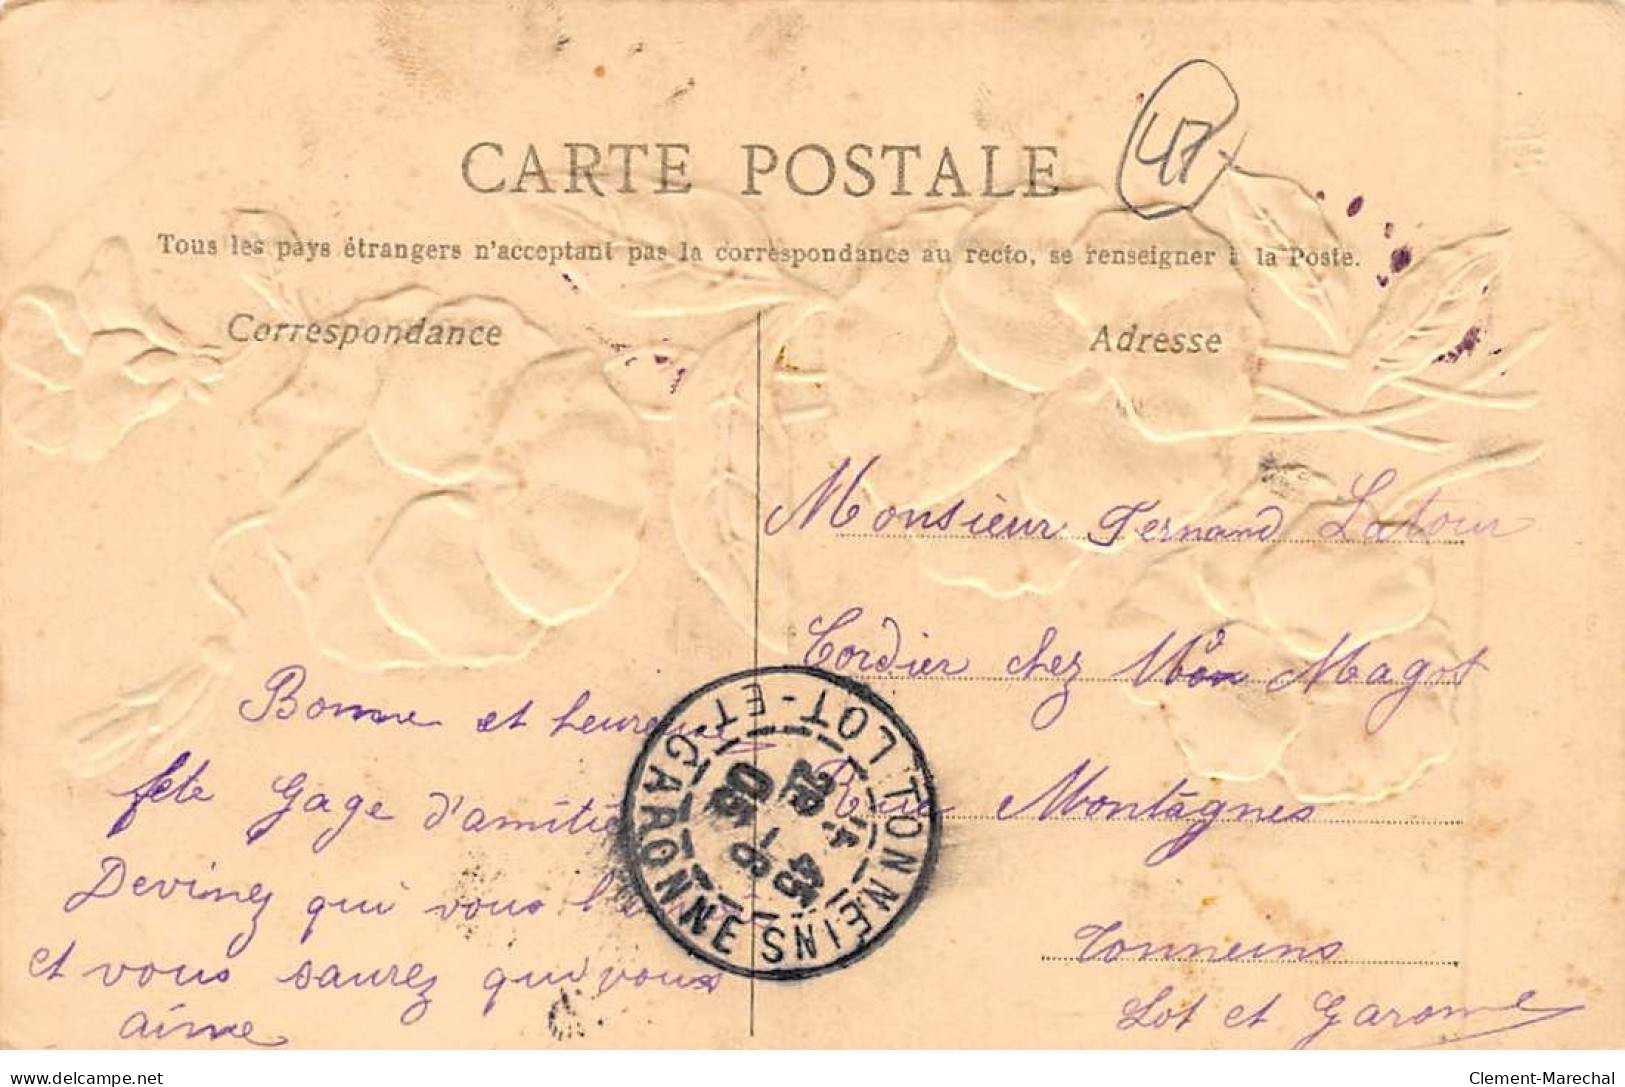 47
CARTE POSTALE
Tous les pays étrangers n'acceptant pas la correspondance au recto, se renseigner à la Poste.
Correspondance
Bonne et heureuse
fete Gage d'amitié
Devinez qui vous
et vous saurez qui vous
aime
Adresse
Monsieur Fernand Latour
Cordier chez Magot
Rue Montagnes
Tonneins
Lot et Garonne
TONNEINS
LOT-ET-GARONNE
delcampe.net
Clement-Marechal